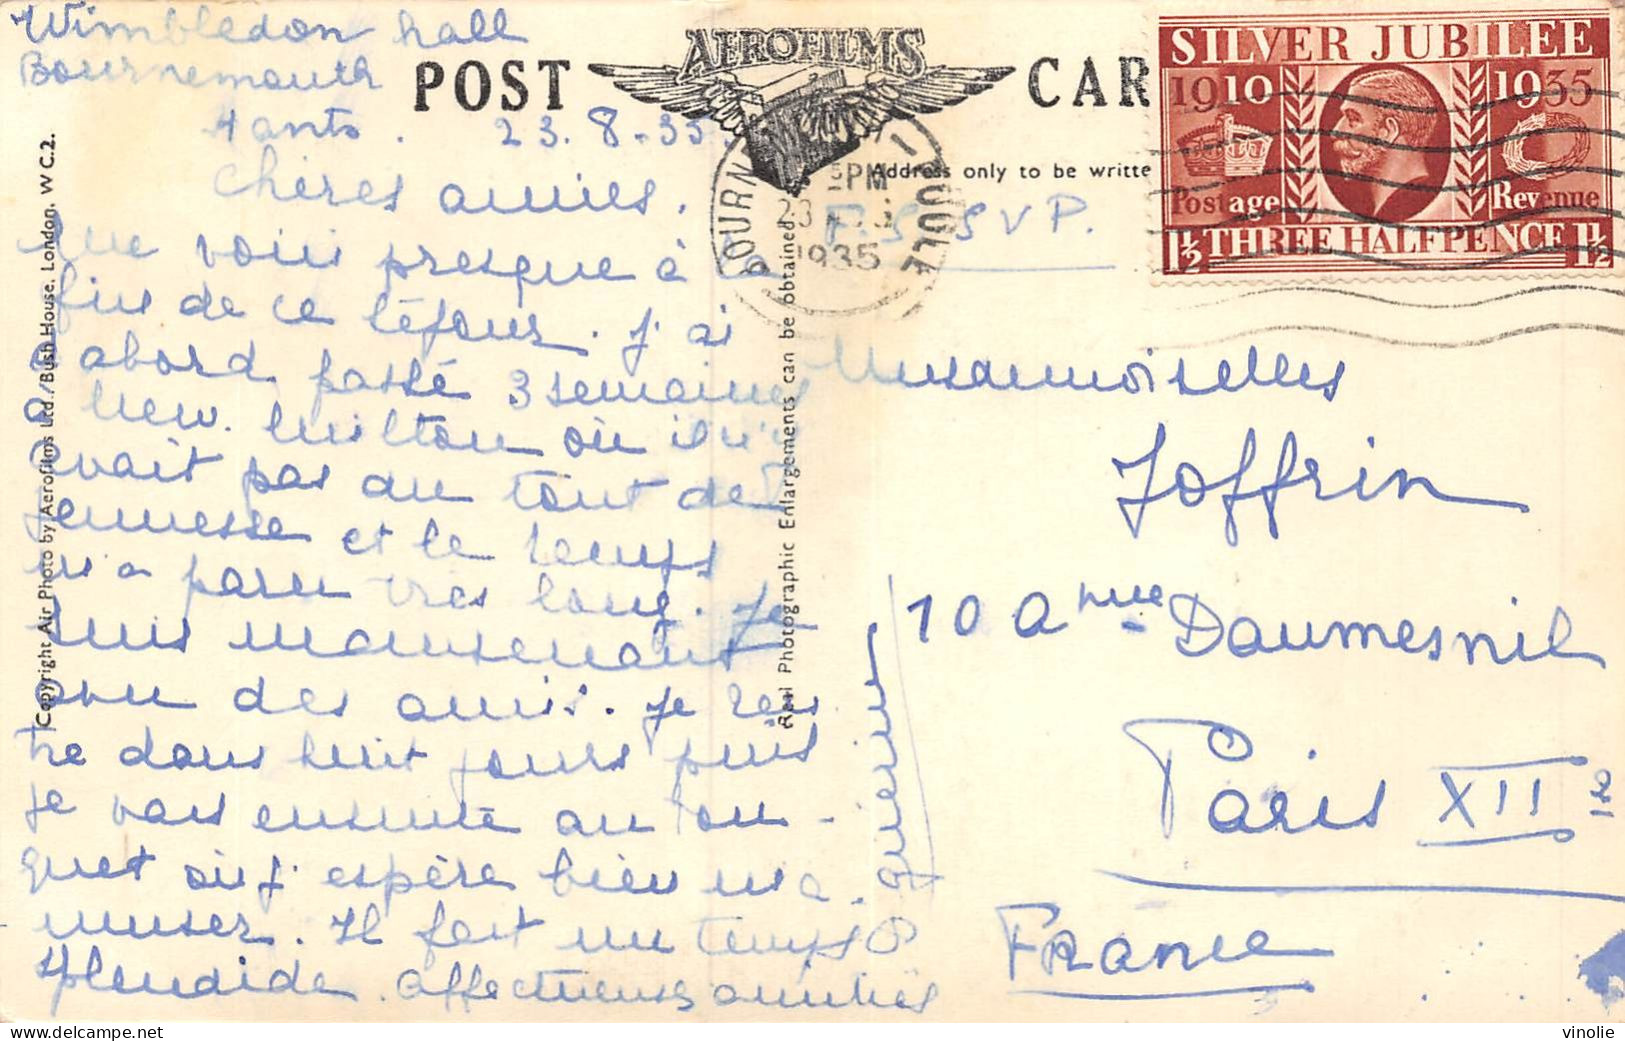 Wimbledon hall
Bournemouth
Hants. 23.8-35.
chères amies.
Me voici presque à la
fin de ce séjour. J'ai
d'abord passé 3 semaines
à New. Milton où il n'y
avait pas du tout de
jeunesse et le temps
m'a paru très long. Je
suis maintenant
avec des amis. Je ren
tre dans huit jours puis
je vais ensuite au Tou-
quet où j'espère bien m'a-
muser. Il fait un temps
splendide. affectueuses amitiés
POST CAR
AEROFILMS
Address only to be writte
F.S. S V P.
SILVER JUBILEE
1910 1935
Postage Revenue
1½ THREE HALFPENCE 1½
PM
23
1935
Mesdemoiselles
Joffrin
10 Avnue Daumesnil
Paris XIIe
France
Copyright Air Photo by Aerofilms Ltd., Bush House, London, W.C.2.
Real Photographic Enlargements can be obtained.
vinolie